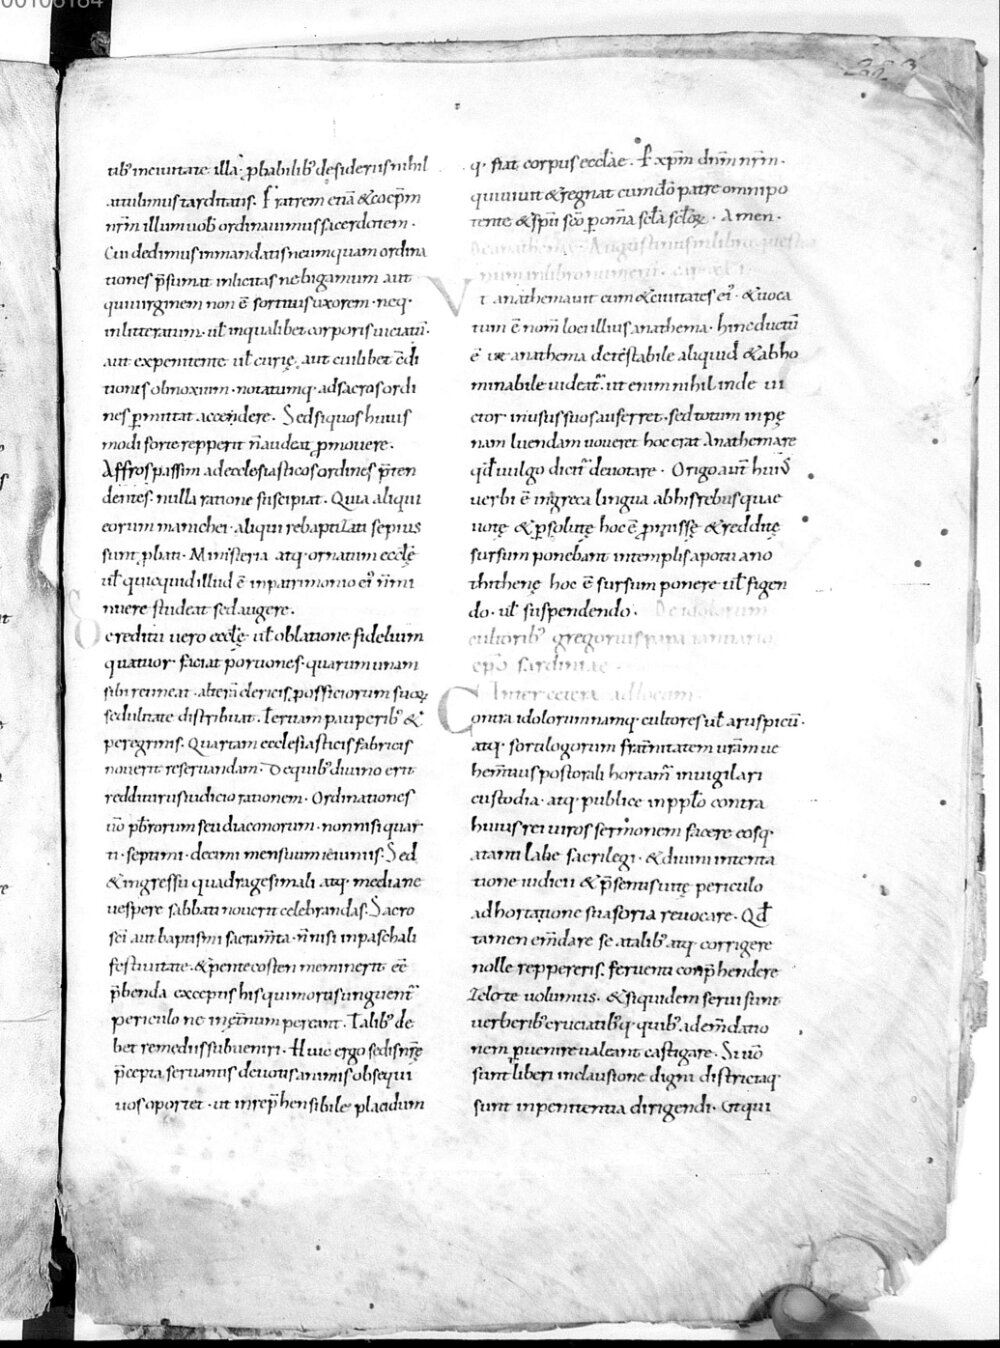 00106184
tib' inciuitate illa p̱babilib' desideriis nihil
attulimus tarditatis. Fratrem etiā & coep̄m
nr̄m illum uob' ordinauimus sacerdotem.
Cui dedimus inmandatis neumquam ordina
tiones p̄sumat inlicitas ne bigamum aut
qui uirginem non ē sortitus uxorem. neq.
inlitteratum. uł inqualibet corporis uiciatū.
aut expenitente uł curię aut cuilibet c̄di
tionis obnoxium. notatumq. adsacros ordi
nes p̱mittat accedere. Sed si quos huius
modi forte reppererit n̄ audeat p̱mouere.
Affros passim ad ecclesiasticos ordines p̄ten
dentes. nulla ratione suscipiat. Quia aliqui
eorum manichei. aliqui rebaptizati sepius
sunt p̱bati. Ministeria atq. ornatum eccłę
uł quicquid illud ē inpatrimonio ei' n̄ mi
nuere studeat sed augere.
De reditu uero eccłę uł oblatione fidelium
quatuor faciat portiones. quarum unam
sibi retineat. alterā clericis p̱ officiorum suoꝝ
sedulitate distribuat. Tertiam pauperib' &
peregrinis. Quartam ecclesiasticis fabricis
nouerit reseruandam. De quib' diuino erit
redditurus iudicio rationem. Ordinationes
ūo p̄brorum seu diaconorum. non nisi quar
ti. septimi. decimi mensuum ieiuniis. Sed
& ingressu quadragesimali atq. mediane
uespere sabbati nouerit celebrandas. Sacro
sc̄i aut baptismi sacram̄ta n̄ nisi inpaschali
festiuitate & pentecosten meminerit eē
p̄benda exceptis his qui mortis urguent̄
periculo ne inęt̄num pereant. Talib' de
bet remediis subueniri. Huic ergo sedis nr̄ę
p̄cepta seruantis deuotis animis obsequi
uos oportet. ut inrep̄hensibile placidum
q. fiat corpus eccłae. P̱ xp̄m dn̄m nr̄m.
qui uiuit & regnat cum dō patre omnipo
tente & sp̄u sc̄o p̱ om̄a scła scłoꝝ. Amen.
De anathema. Augustinus in libro questio
num inlibro numeri.
Vt anathemauit eum & ciuitates ei'. & uoca
tum ē nom̄ loci illius anathema. hinc ductū
ē ut anathema detestabile aliquid & abho
minabile uideat̄. ut enim nihil inde ui
ctor inusus suos auferret. sed totum inpę
nam luendam uoueret hoc erat Anathemare
qd̄ uulgo dict̄ deuotare. Origo aut̄ hui'
uerbi ē ingreca lingua ab his rebus quae
uotę & p̱solutę hoc ē p̱missę & redditę
sursum ponebant intemplis apo tu ano
thithene hoc ē sursum ponere uł figen
do. uł suspendendo. De idolorum
cultorib' gregorius papa ianuario
ep̄o sardiniae
Inter cetera ad locum
Contra idolorum namq. cultores uł aruspicū.
atq. sortilogorum frat̄nitatem ur̄am ue
hem̄tius postorali hortam̄ inuigilari
custodia. atq. publice inpp̄lo contra
huius rei uiros sermonem facere eosq.
a tanti labe sacrilegi. & diuini intenta
tione iudicii & p̄sentis uitę periculo
adhortatione suasoria reuocare. Qd̄
tamen em̄dare se a talib' atq. corrigere
nolle reppereris. feruenti comp̄hendere
zelo te uolumus. & siquidem serui sunt
uerberib' cruciatib'q. quib' ad em̄datio
nem p̱uenire ualeant castigare. Si uō
sunt liberi inclusione digni districtaq.
sunt inpenitentia dirigendi. Et qui